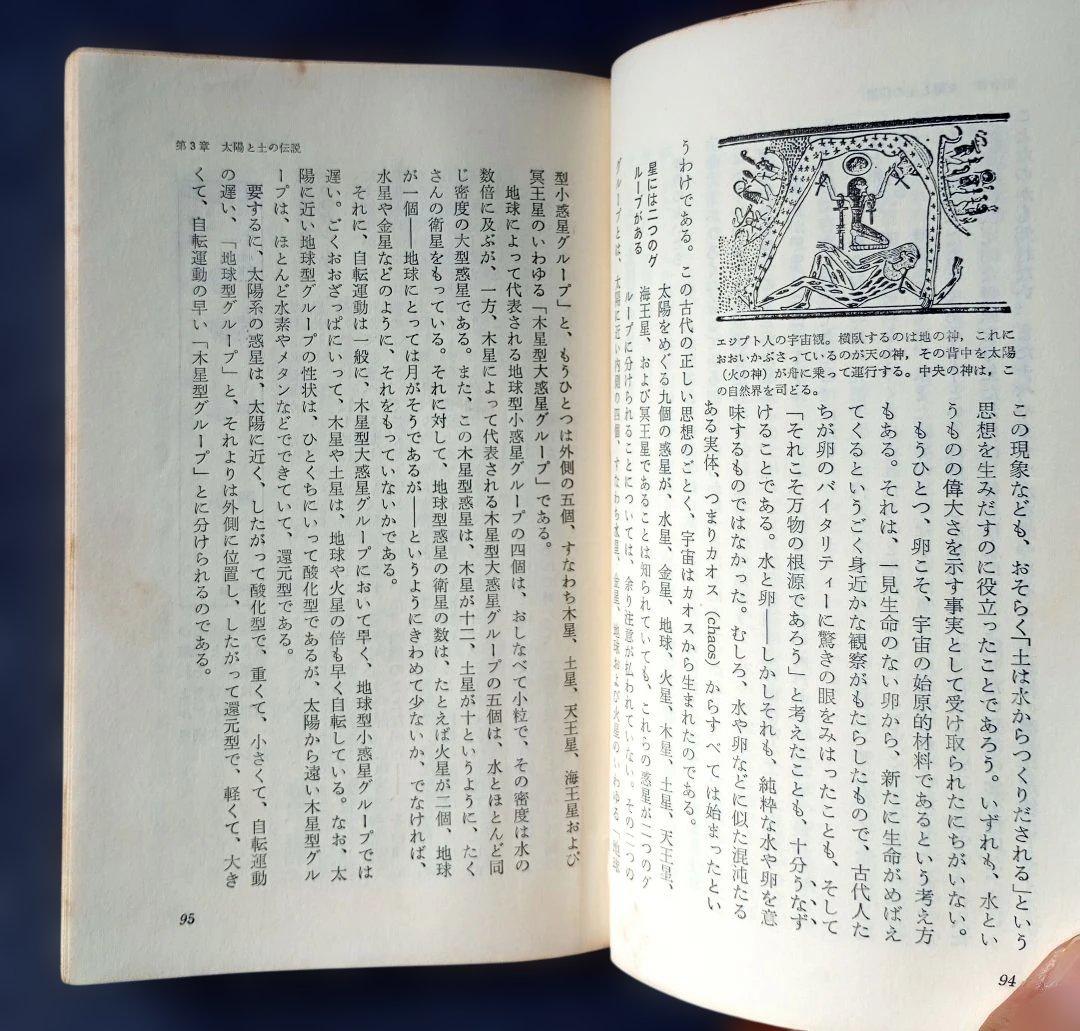 エジプト人の宇宙観。横臥するのは地の神，これに
おおいかぶさっているのが天の神，その背中を太陽
（火の神）が舟に乗って運行する。中央の神は，こ
の自然界を司どる。
この現象なども、おそらく「土は水からつくりだされる」という
思想を生みだすのに役立ったことであろう。いずれも、水とい
うものの偉大さを示す事実として受け取られたにちがいない。
もうひとつ、卵こそ、宇宙の始原的材料であるという考え方
もある。それは、一見生命のない卵から、新たに生命がめばえ
てくるというごく身近かな観察がもたらしたもので、古代人た
ちが卵のバイタリティーに驚きの眼をみはったことも、そして
「それこそ万物の根源であろう」と考えたことも、十分うなず
けることである。水と卵――しかしそれも、純粋な水や卵を意
味するものではなかった。むしろ、水や卵などに似た混沌たる
ある実体、つまりカオス（chaos）からすべては始まったとい
うわけである。この古代の正しい思想のごとく、宇宙はカオスから生まれたのである。
星には二つのグ
ループがある
太陽をめぐる九個の惑星が、水星、金星、地球、火星、木星、土星、天王星、
海王星、および冥王星であることは知られていても、これらの惑星が二つのグ
ループに分けられることについては、余り注意が払われていない。その二つの
グループとは、太陽に近い内側の四個、すなわち水星、金星、地球および火星のいわゆる「地球
94
第3章 太陽と土の伝説
型小惑星グループ」と、もうひとつは外側の五個、すなわち木星、土星、天王星、海王星および
冥王星のいわゆる「木星型大惑星グループ」である。
地球によって代表される地球型小惑星グループの四個は、おしなべて小粒で、その密度は水の
数倍に及ぶが、一方、木星によって代表される木星型大惑星グループの五個は、水とほとんど同
じ密度の大型惑星である。また、この木星型惑星は、木星が十二、土星が十というように、たく
さんの衛星をもっている。それに対して、地球型惑星の衛星の数は、たとえば火星が二個、地球
が一個――地球にとっては月がそうであるが――というようにきわめて少ないか、でなければ、
水星や金星などのように、それをもっていないかである。
それに、自転運動は一般に、木星型大惑星グループにおいて早く、地球型小惑星グループでは
遅い。ごくおおざっぱにいって、木星や土星は、地球や火星の倍も早く自転している。なお、太
陽に近い地球型グループの性状は、ひとくちにいって酸化型であるが、太陽から遠い木星型グル
ープは、ほとんど水素やメタンなどでできていて、還元型である。
要するに、太陽系の惑星は、太陽に近く、したがって酸化型で、重くて、小さくて、自転運動
の遅い、「地球型グループ」と、それよりは外側に位置し、したがって還元型で、軽くて、大き
くて、自転運動の早い「木星型グループ」とに分けられるのである。
95